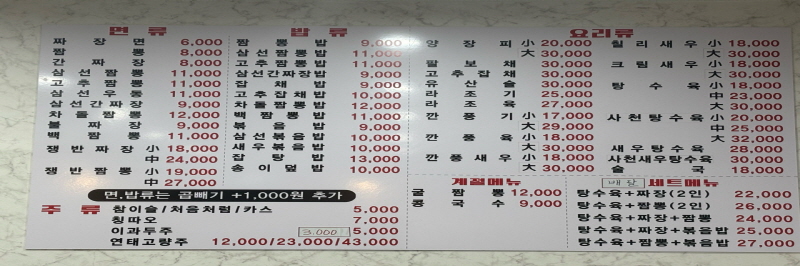 면 류
짜 장 면 6,000
짬 뽕 8,000
간 짜 장 8,000
삼 선 짬 뽕 11,000
고 추 짬 뽕 11,000
삼 선 우 동 11,000
삼선간짜장 9,000
차 돌 짬 뽕 12,000
불 짜 장 9,000
백 짬 뽕 11,000
쟁반짜장 小 18,000
中 24,000
쟁반짬뽕 小 19,000
中 27,000
밥 류
짬 뽕 밥 9,000
삼선짬뽕밥 11,000
고추짬뽕밥 11,000
삼선간짜장밥 9,000
잡 채 밥 9,000
고추잡채밥 10,000
차돌짬뽕밥 12,000
백짬뽕밥 11,000
볶 음 밥 9,000
삼선볶음밥 10,000
새우볶음밥 10,000
잡 탕 밥 13,000
송 이 덮 밥 10,000
면,밥류는 곱빼기 +1,000원 추가
주 류
참이슬/처음처럼/카스 5,000
칭따오 7,000
이과두주 3,000 5,000
연태고량주 12,000/23,000/43,000
요리류
양 장 피 小 20,000
大 30,000
팔 보 채 30,000
고 추 잡 채 30,000
유 산 슬 30,000
라 조 기 25,000
라 조 육 27,000
깐 풍 기 小 17,000
大 29,000
깐 풍 육 小 18,000
大 30,000
깐풍새우 小 18,000
大 30,000
칠리새우 小 18,000
大 30,000
크림새우 小 18,000
大 30,000
탕 수 육 小 18,000
中 23,000
大 30,000
사천탕수육 小 20,000
中 25,000
大 32,000
새우탕수육 28,000
사천새우탕수육 30,000
술 국 18,000
계절메뉴
굴 짬 뽕 12,000
콩 국 수 9,000
세트메뉴
탕수육+짜장(2인) 22,000
탕수육+짬뽕(2인) 26,000
탕수육+짜장+짬뽕 24,000
탕수육+짜장+볶음밥 25,000
탕수육+짬뽕+볶음밥 27,000